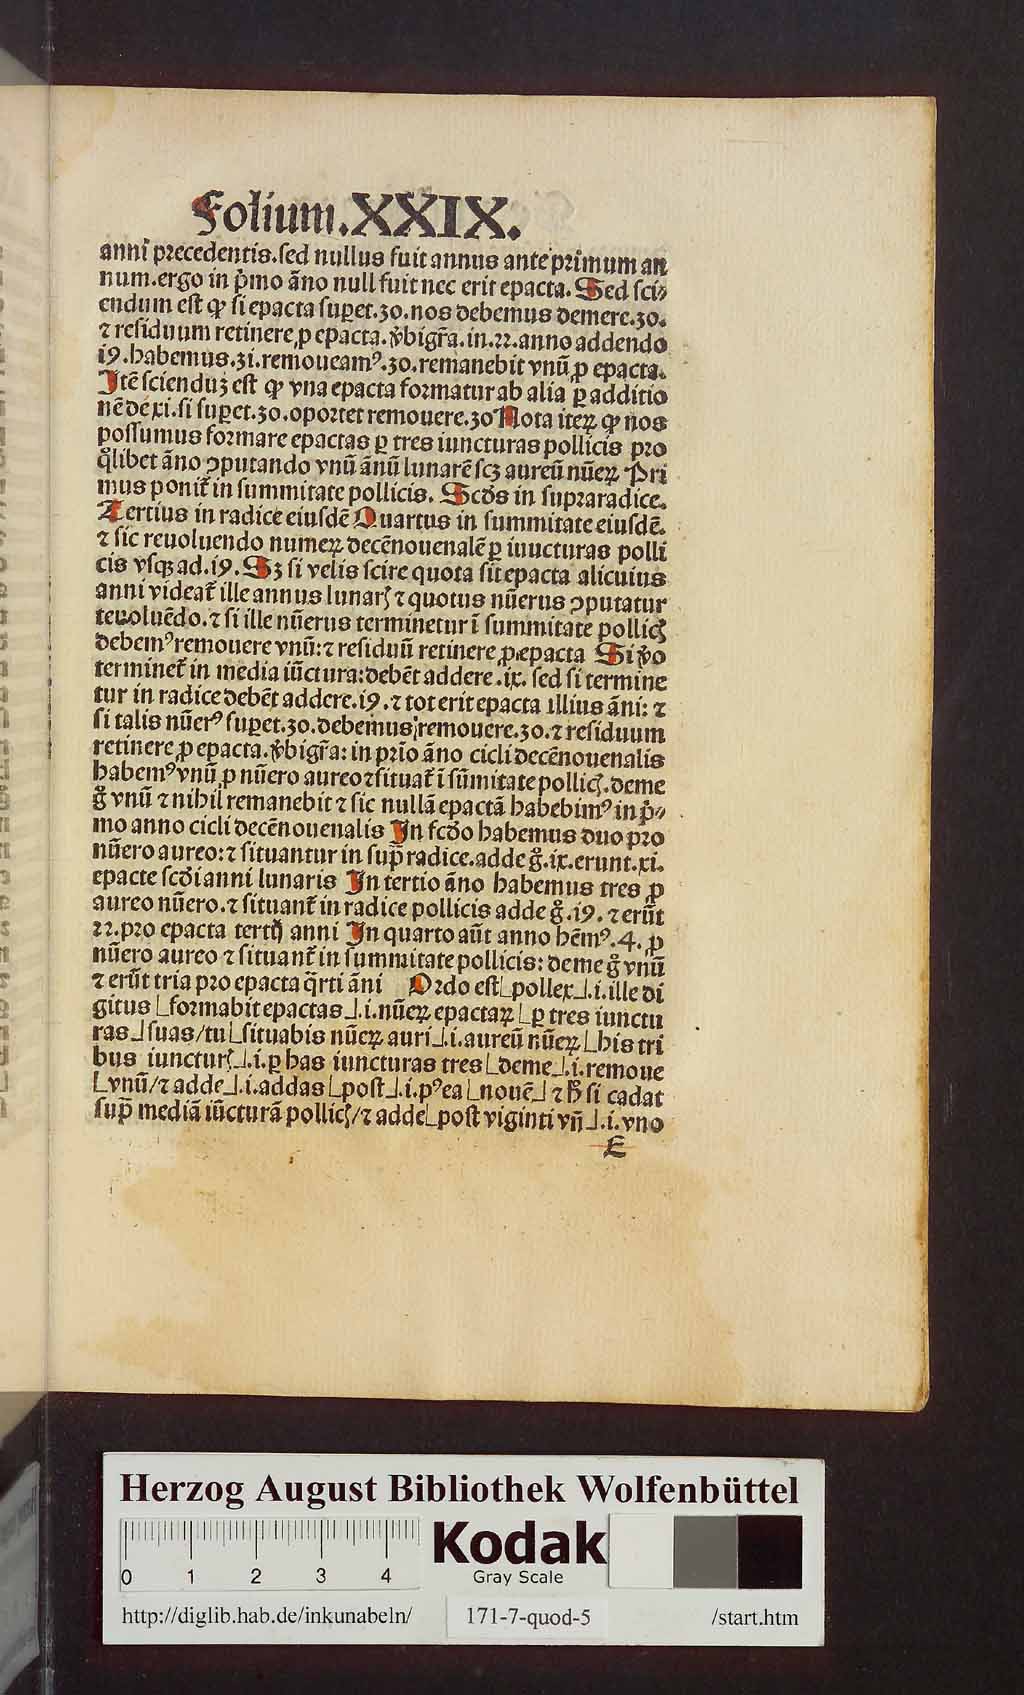 Folium.XXIX.
anni precedentis.sed nullus fuit annus ante primum an
num.ergo in p̄mo āno null fuit nec erit epacta. Sed sci⸗
endum est ꝙ si epacta suꝑet.30.nos debemus demere.30.
⁊ residuum retinere ꝓ epacta.v̄bigr̄a.in.22.anno addendo
19.habemus.31.remoueamꝰ.30.remanebit vnū ꝓ epacta.
Itē scienduꝫ est ꝙ vna epacta formatur ab alia ꝑ additio
nē de xi.si suꝑet.30.oportet remouere.30 Nota iteꝝ ꝙ nos
possumus formare epactas ꝑ tres iuncturas pollicis pro
q̊libet āno ꝯputando vnū ānū lunarē scꝫ aureū nūeꝝ Pri
mus ponit᷑ in summitate pollicis. Scd̄s in supraradice.
Tertius in radice eiusdē Quartus in summitate eiusdē.
⁊ sic reuoluendo numeꝝ decēnouenalē ꝑ iuucturas polli
cis vsqꝫ ad.19. Sꝫ si velis scire quota sit epacta alicuius
anni videat᷑ ille annus lunarꝭ ⁊ quotus nūerus ꝯputatur
teuoluēdo.⁊ si ille nūerus terminetur ī summitate pollicꝭ
debemꝰ remouere vnū:⁊ residuū retinere ꝓ epacta Si v̄o
terminet᷑ in media iūctura:debēt addere.ix. sed si termine
tur in radice debēt addere.19.⁊ tot erit epacta illius āni: ⁊
si talis nūerꝰ suꝑet.30.debemus remouere.30.⁊ residuum
retinere ꝓ epacta.v̄bigr̄a: in pr̄io āno cicli decēnouenalis
habemꝰ vnū ꝓ nūero aureo ⁊situat᷑ ī sūmitate pollicꝭ.deme
g̊ vnū ⁊ nihil remanebit ⁊ sic nullā epactā habebimꝰ in p̄⸗
mo anno cicli decēnouenalis In scd̄o habemus duo pro
nūero aureo:⁊ situantur in sup̄ radice.adde g̊.ix.erunt.xi.
epacte scd̄i anni lunaris In tertio āno habemus tres ꝓ
aureo nūero.⁊ situant᷑ in radice pollicis adde g̊.19.⁊ erūt
22.pro epacta tertij anni In quarto aūt anno hēmꝰ.4.ꝓ
nūero aureo ⁊ situant᷑ in summitate pollicis: deme g̊ vnū
⁊ erūt tria pro epacta q̄rti āni Ordo est⌊pollex⌋.i.ille di
gitus ⌊formabit epactas⌋.i.nūeꝝ epactaꝝ ⌊ꝑ tres iunctu
ras⌋suas/tu⌊situabis nūeꝝ auri⌋.i.aureū nūeꝝ⌊his tri
bus iuncturꝭ⌋.i.ꝑ has iuncturas tres⌊deme⌋.i.remoue
⌊vnū/⁊ adde⌋.i.addas⌊post⌋.i.pꝰea⌊nouē⌋⁊ h̄ si cadat
sup̄ mediā iūcturā pollicꝭ/⁊ adde⌊post viginti vn̄⌋.i.vno
E
Herzog August Bibliothek Wolfenbüttel
0 1 2 3 4
Kodak
Gray Scale
http://diglib.hab.de/inkunabeln/ 171-7-quod-5 /start.htm